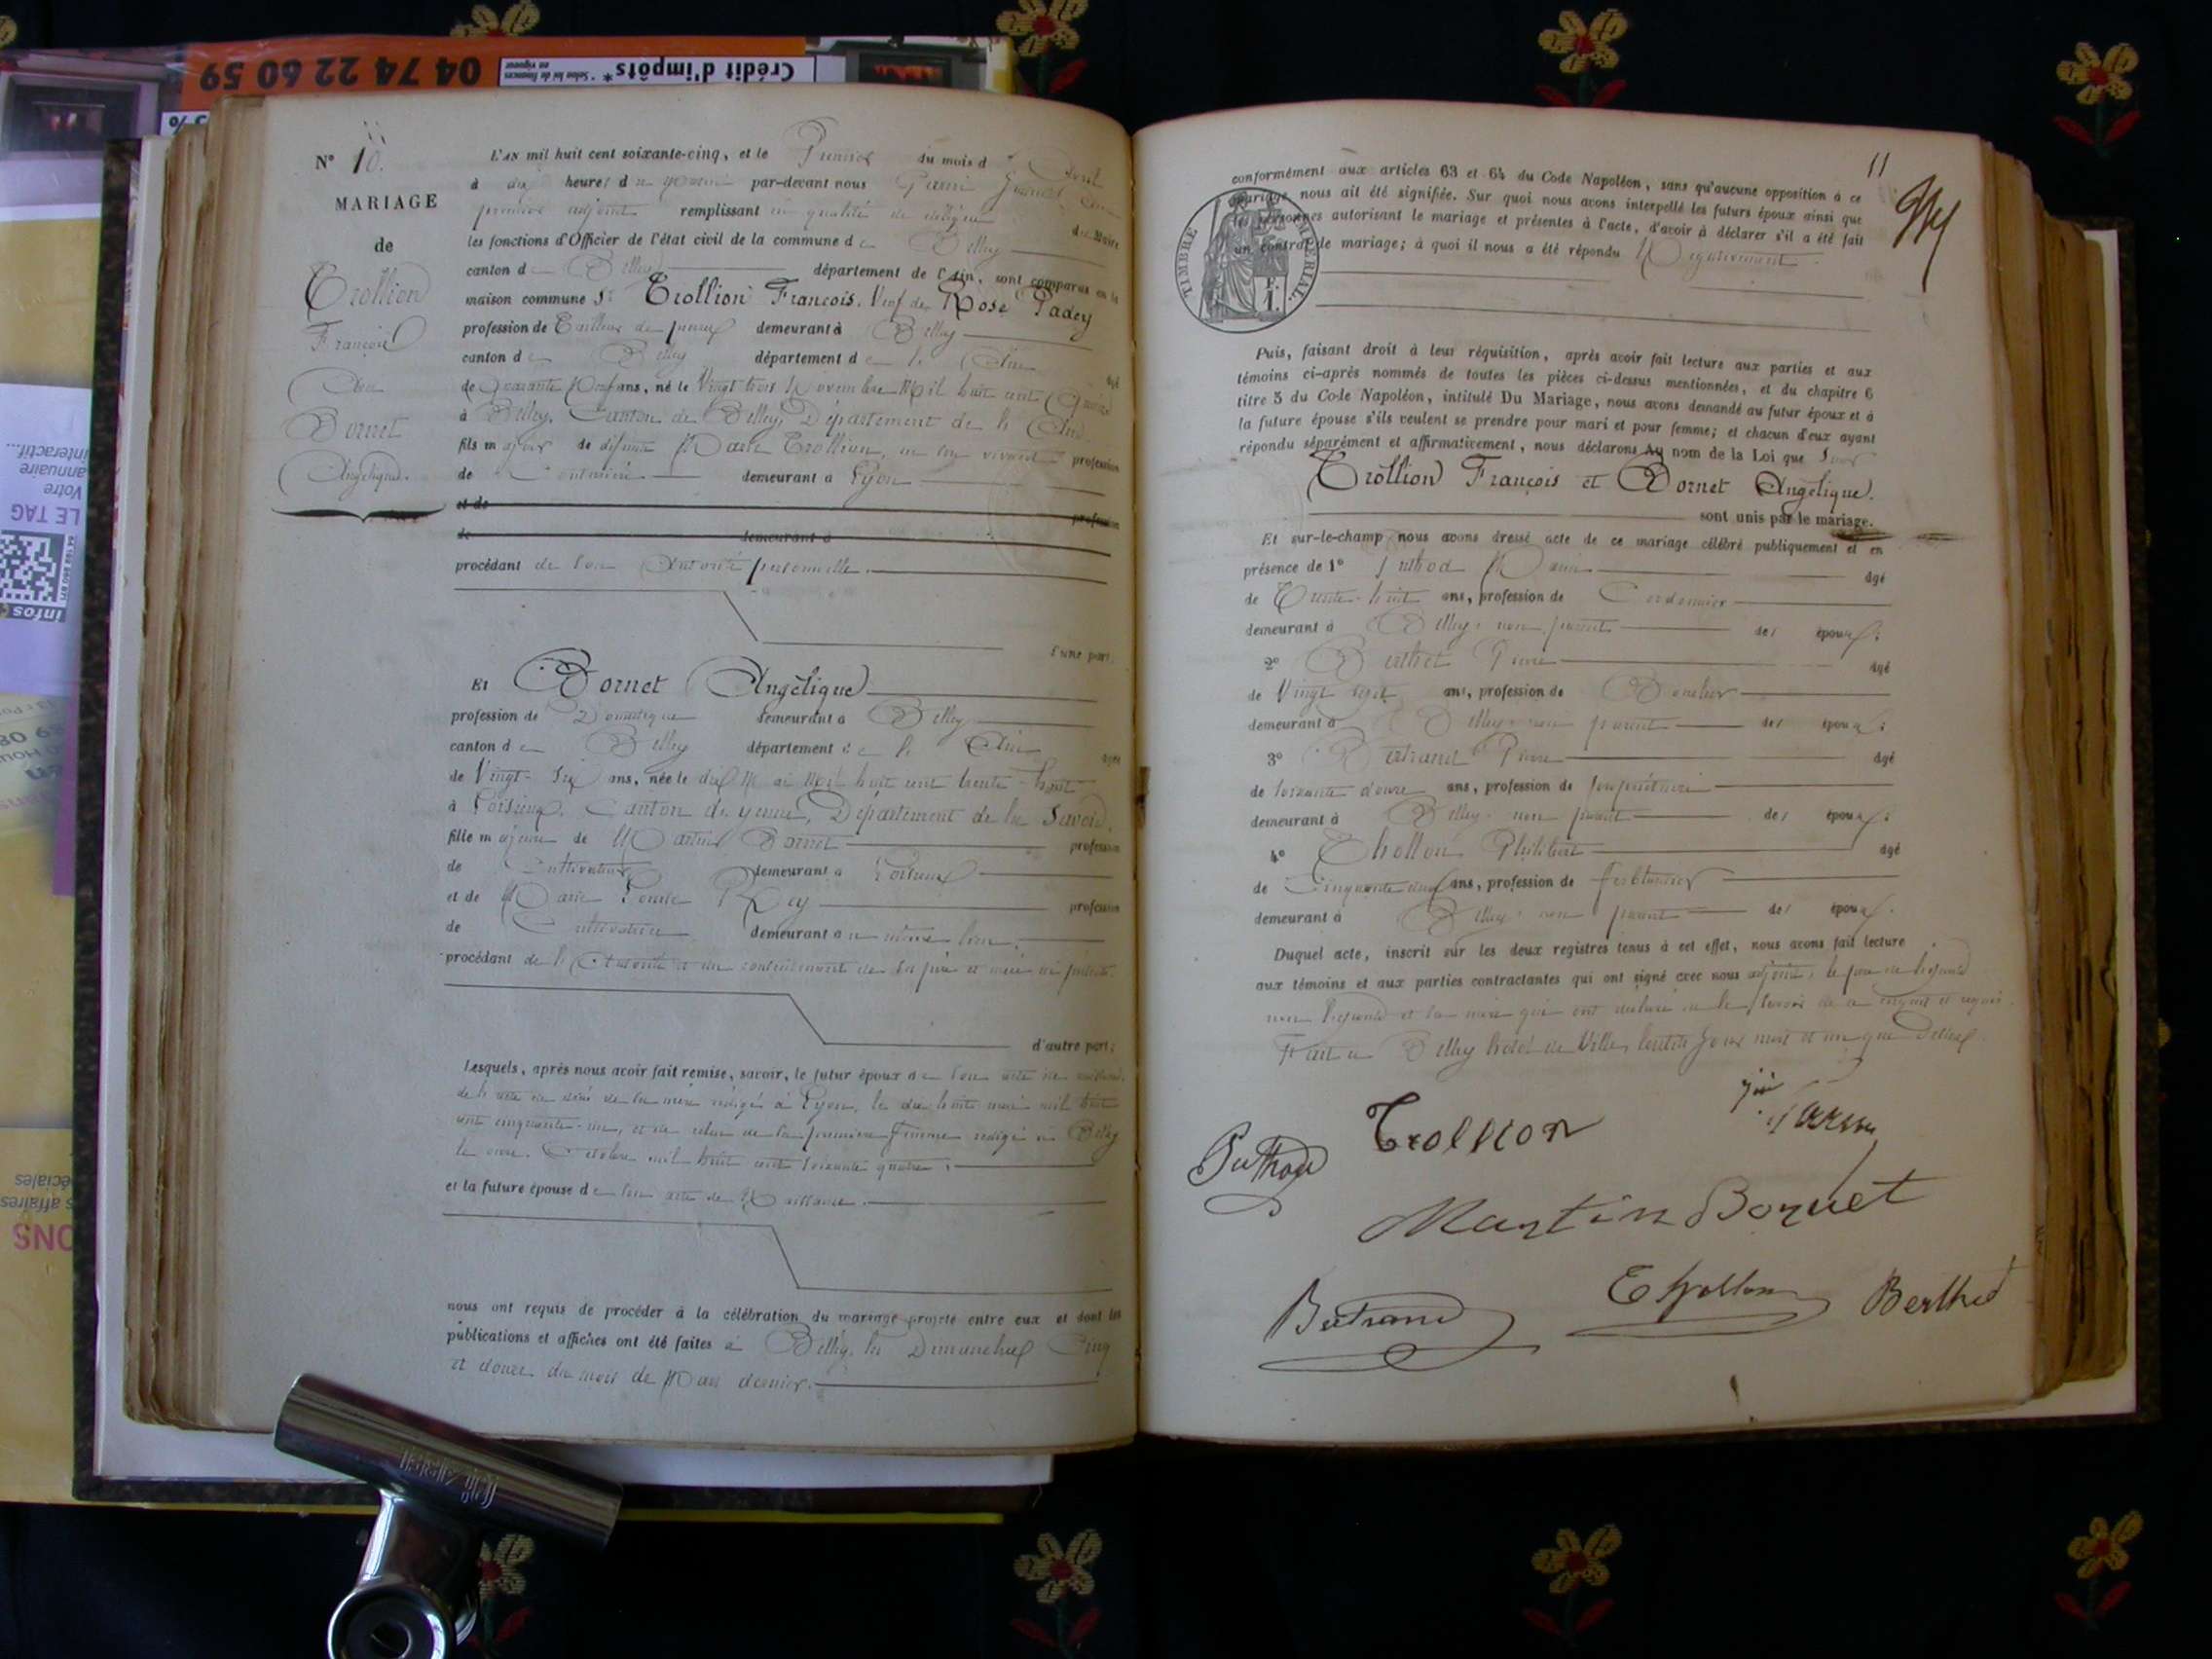 04 74 22 60 59
Crédit d'impôts*
* Selon loi de finances
en vigueur
%
interactif...
annuaire
Votre
LE TAG
infos
spéciales
affaires
ONS
N° 10.
MARIAGE
de
Trollion
François
Avec
Bornet
Angélique.
L'AN mil huit cent soixante-cinq, et le Premier du mois d'Avril
à dix heures du par-devant nous
premier adjoint remplissant en qualité de délégué du Maire
les fonctions d'Officier de l'état civil de la commune de Belley
canton de Belley département de l'Ain, sont comparus en la
maison commune Sr Trollion François, Veuf de Rose Padey
profession de Tailleur de pierres demeurant à Belley
canton de Belley département de l'Ain âgé
de Quarante Neuf ans, né le Vingt trois Novembre Mil huit cent Quinze
à Belley, Canton de Belley, Département de l'Ain.
fils majeur de défunte Marie Trollion, en son vivant profession
de Couturière demeurant à Lyon
et de profession
de demeurant à
procédant de son Autorité personnelle.
d'une part;
Et Bornet Angélique
profession de Domestique demeurant à Belley
canton de Belley département de l'Ain âgée
de Vingt-Six ans, née le dix Mai Mil huit cent trente-huit
à Loisieux, Canton de Yenne, Département de la Savoie.
fille majeure de Martin Bornet profession
de Cultivateur demeurant à Loisieux
et de Marie Louise Rey profession
de Cultivatrice demeurant au même lieu.
procédant de l'Autorité et du consentement de ses père et mère ici présents.
d'autre part;
Lesquels, après nous avoir fait remise, savoir, le futur époux de son acte de naissance,
de l'acte de décès de sa mère rédigé à Lyon, le dix huit mai mil huit
cent cinquante-un, et de celui de sa première femme rédigé à Belley
le onze Octobre mil huit cent soixante quatre;
et la future épouse de son acte de Naissance.
nous ont requis de procéder à la célébration du mariage projeté entre eux et dont les
publications et affiches ont été faites à Belley, les Dimanches Cinq
et douze du mois de Mars dernier.
11
conformément aux articles 63 et 64 du Code Napoléon, sans qu'aucune opposition à ce
mariage nous ait été signifiée. Sur quoi nous avons interpellé les futurs époux ainsi que
les personnes autorisant le mariage et présentes à l'acte, d'avoir à déclarer s'il a été fait
un contrat de mariage; à quoi il nous a été répondu Négativement.
TIMBRE IMPÉRIAL.
1 F.
Puis, faisant droit à leur réquisition, après avoir fait lecture aux parties et aux
témoins ci-après nommés de toutes les pièces ci-dessus mentionnées, et du chapitre 6
titre 5 du Code Napoléon, intitulé Du Mariage, nous avons demandé au futur époux et à
la future épouse s'ils veulent se prendre pour mari et pour femme; et chacun d'eux ayant
répondu séparément et affirmativement, nous déclarons au nom de la Loi que Sieur
Trollion François et Bornet Angélique.
sont unis par le mariage.
Et sur-le-champ nous avons dressé acte de ce mariage célébré publiquement et en
présence de 1° âgé
de Trente-huit ans, profession de Cordonnier
demeurant à Belley, non parent des époux;
2° Berthet Pierre âgé
de Vingt sept ans, profession de
demeurant à Belley, non parent des époux;
3° Bertrand Pierre âgé
de soixante douze ans, profession de propriétaire
demeurant à Belley, non parent des époux;
4° Thollon Philibert âgé
de Cinquante cinq ans, profession de ferblantier
demeurant à Belley, non parent des époux.
Duquel acte, inscrit sur les deux registres tenus à cet effet, nous avons fait lecture
aux témoins et aux parties contractantes qui ont signé avec nous adjoint, le père de l'épouse
non l'épouse et sa mère qui ont déclaré ne le savoir de ce enquis et requis.
Fait à Belley hôtel de Ville, lesdits jour mois et an que dessus.
Trollion
Martin Bornet
Bertrand
Thollon
Berthet